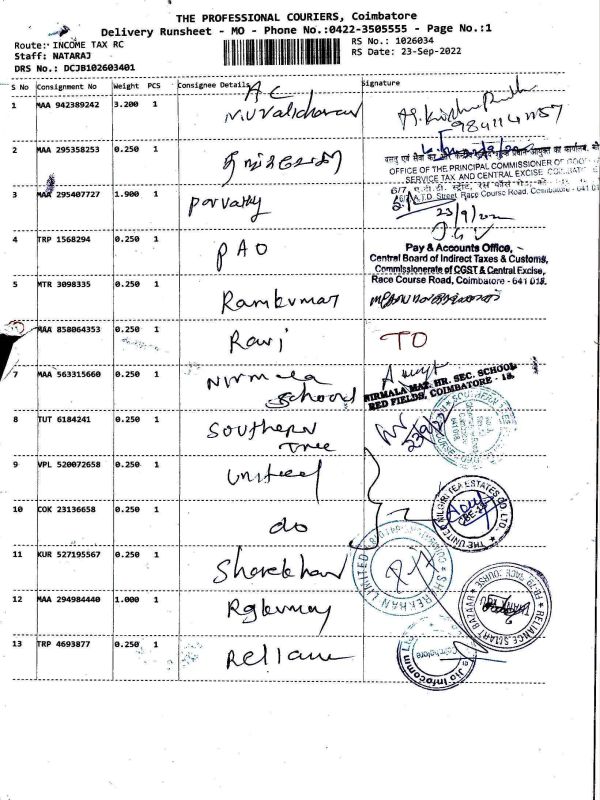 THE PROFESSIONAL COURIERS, Coimbatore
Delivery Runsheet - MO - Phone No.:0422-3505555 - Page No.:1
Route: INCOME TAX RC
RS No.: 1026034
Staff: NATARAJ
RS Date: 23-Sep-2022
DRS No.: DCJB102603401
S No Consignment No Weight PCS Consignee Details Signature
1 MAA 942389242 3.200 1
2 MAA 295358253 0.250 1
OFFICE OF THE PRINCIPAL COMMISSIONER OF
SERVICE TAX AND CENTRAL EXCISE
6/7, ए.टी.डी. स्ट्रीट, रेस कोर्स
A.T.D. Street, Race Course Road, Coimbatore - 641 018
3 MAA 295407727 1.900 1 Parvathy
23/9/22
4 TRP 1568294 0.250 1 PAO
Pay & Accounts Office,
Central Board of Indirect Taxes & Customs,
Commissionerate of CGST & Central Excise,
Race Course Road, Coimbatore - 641 018.
5 MTR 3098335 0.250 1 Ramkumar
MAA 858064353 0.250 1 Ravi TO
7 MAA 563315660 0.250 1 Nirmala School
NIRMALA MAT. HR. SEC. SCHOOL
RED FIELDS, COIMBATORE - 18.
8 TUT 6184241 0.250 1 Southern Tree
9 VPL 520072658 0.250 1 United
THE UNITED NILGIRI TEA ESTATES CO LTD.
CBE-18
10 COK 23136658 0.250 1 do
11 KUR 527195567 0.250 1 Sharekhan
SHAREKHAN LIMITED
12 MAA 294984440 1.000 1
RELIANCE SMART BAZAAR
13 TRP 4693877 0.250 1 Reliance
Jio Infocomm
Coimbatore